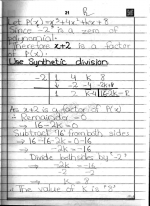 Let P(x) = x³+4x²+kx+8
Since -2 is a zero of
polynomial.
Therefore x+2 is a factor
of P(x)
Use Synthetic division
-2 | 1 4 k 8
-2 -4 -2k+8
1 2 k-4 16-2k=R
As x+2 is a factor of P(x)
Remainder = 0
→ 16-2k=0
Subtract '16' from both sides
→ 16-16-2k=0-16
→ -2k=-16
Divide both sides by '-2'
→ -2k/-2 = -16/-2
→ k=8
The value of k is '8'